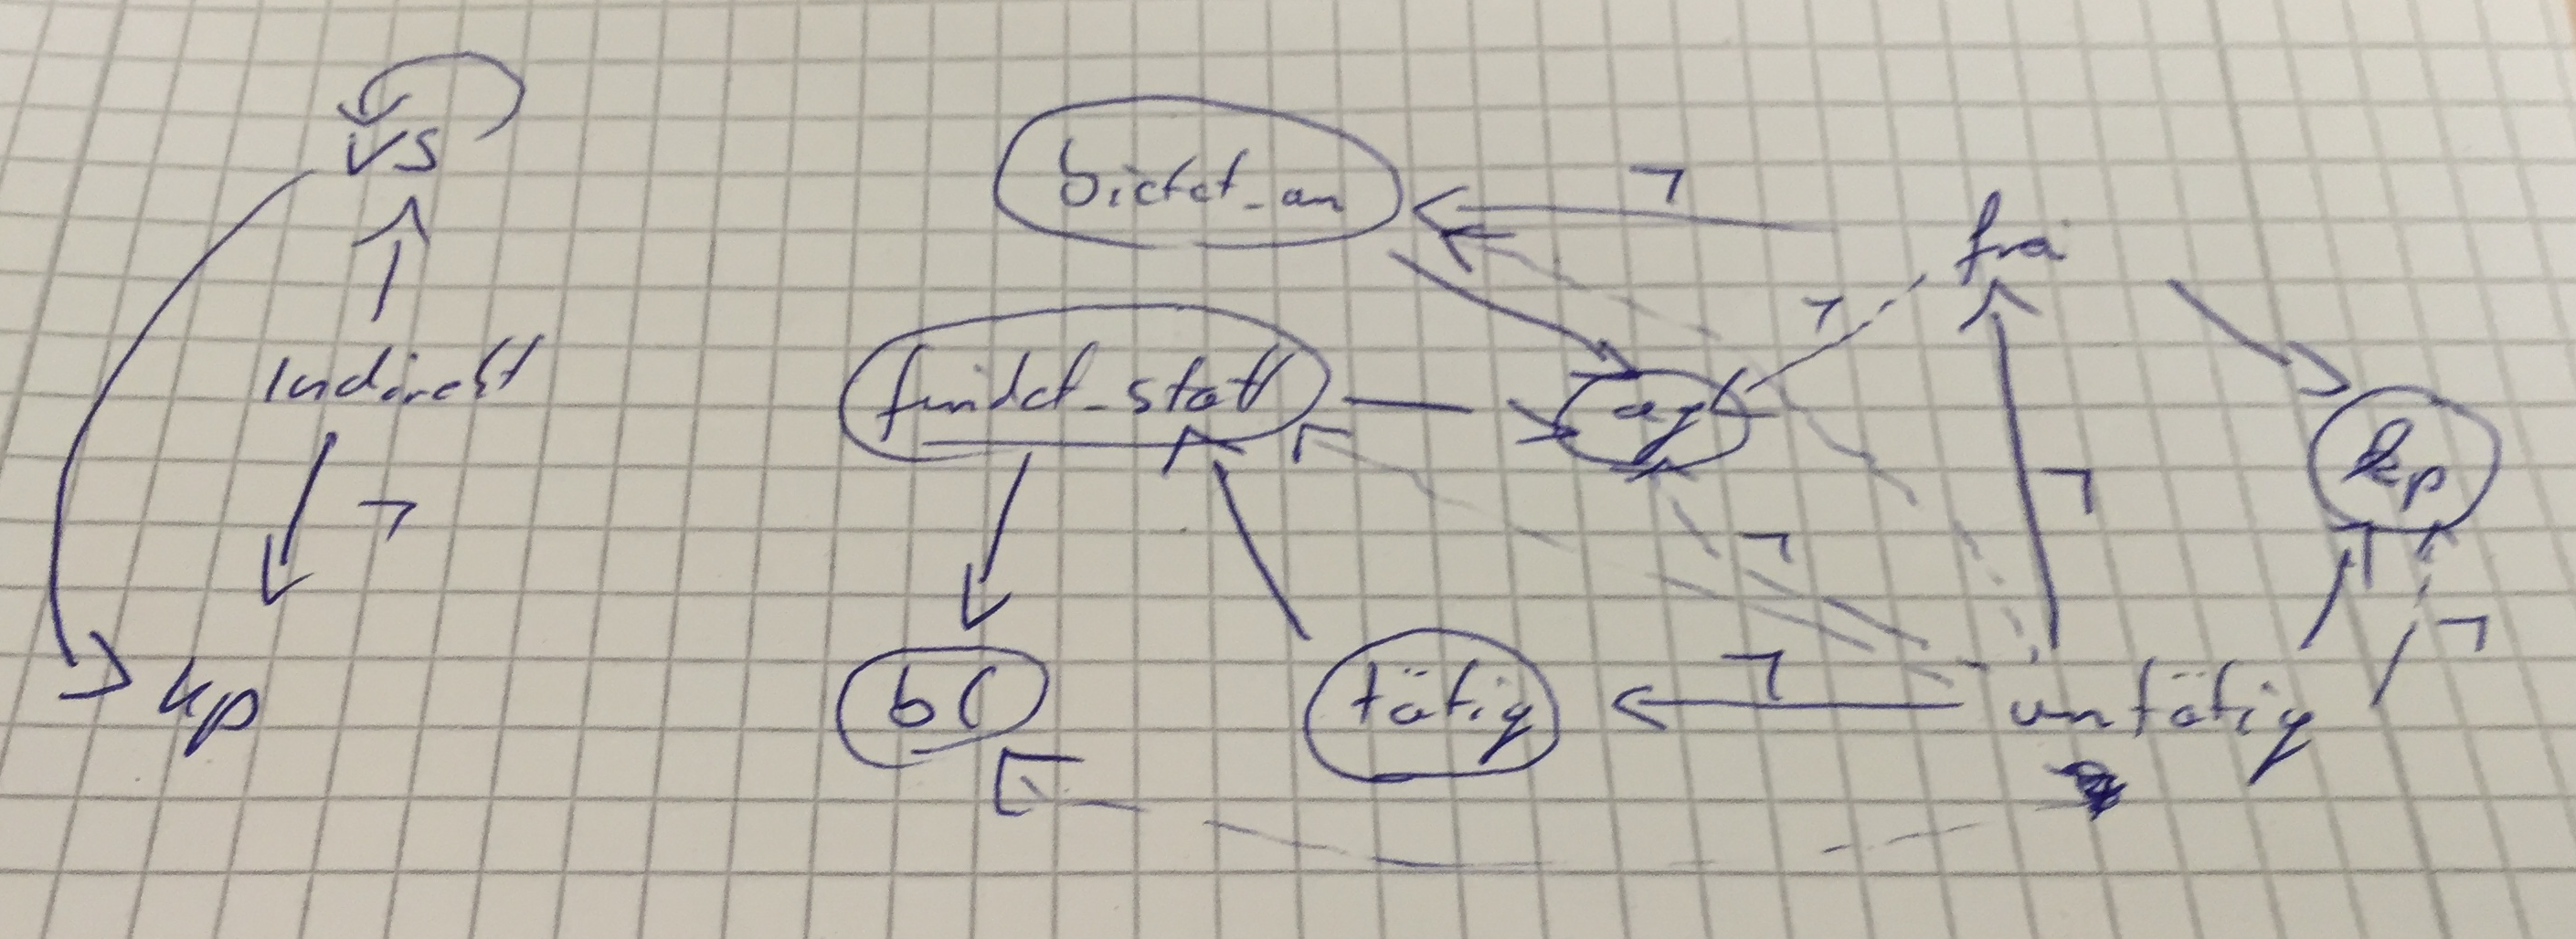 vs
indirekt
¬
kp
bietet_an
¬
frei
findet_statt
¬
agl
¬
kp
¬
¬
bl
tätig
¬
untätig